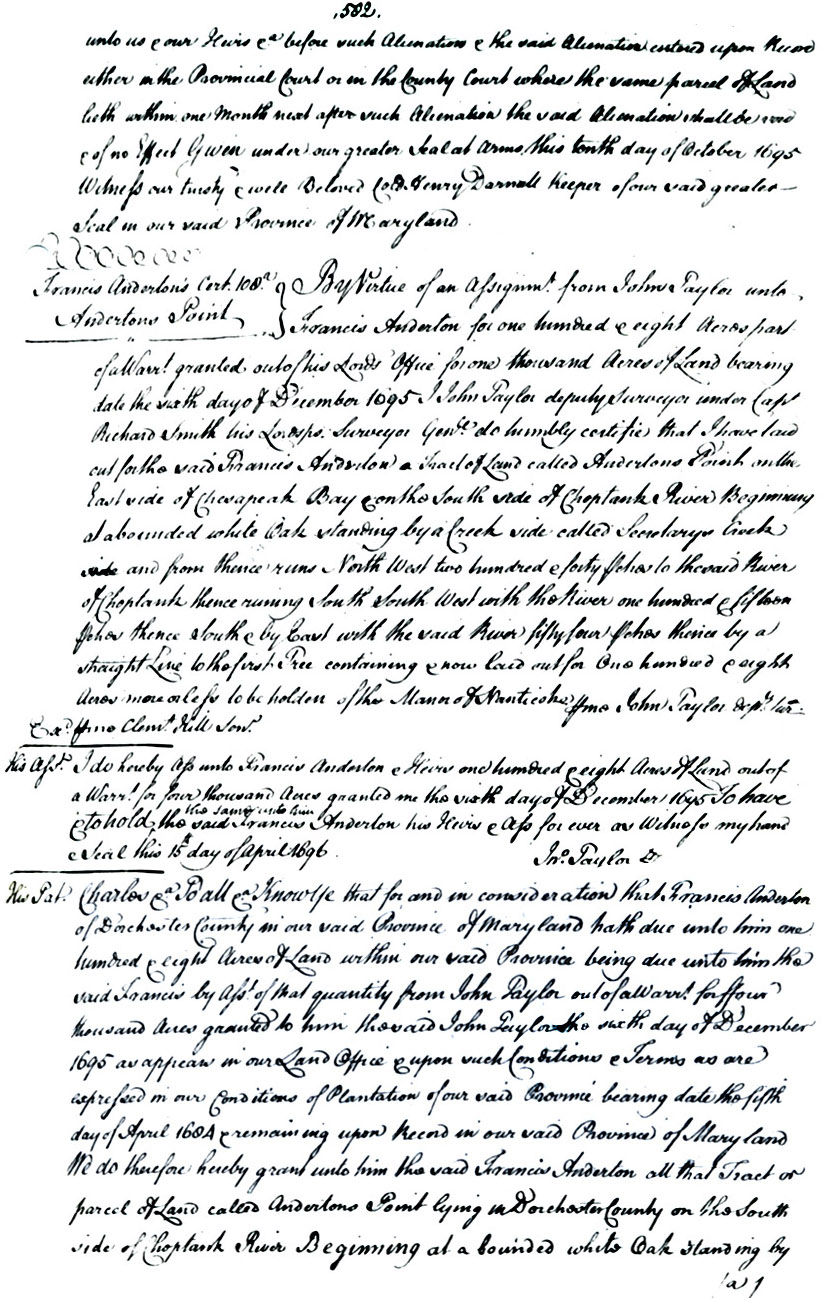 ,582.
unto us & our Heirs &a before such Alienation & the said Alienation entered upon Record
either in the Provincial Court or in the County Court where the same parcel of Land
lieth within one Month next after such Alienation the said Alienation shall be void
& of no Effect Given under our greater Seal at Arms this tenth day of October 1695
Witness our trusty & well Beloved Coll. Henry Darnall Keeper of our said greater
Seal in our said Province of Maryland
Francis Anderton's Cert. 108.a } By Virtue of an Assignmt. from John Taylor unto
Andertons Point } Francis Anderton for one hundred & eight Acres part
of a Warrt. granted out of his Lords Office for one thousand Acres of Land bearing
date the sixth day of December 1695 I John Taylor deputy Surveyor under Capt
Richard Smith his Lordsps. Surveyor Genll. do humbly certifie that I have laid
out for the said Francis Anderton a Tract of Land called Andertons Point on the
East side of Chesapeak Bay & on the South side of Choptank River Beginning
at a bounded white Oak standing by a Creek side called Secretarys Creek
side and from thence runs North West two hundred & forty p̱ches to the said River
of Choptank thence runing South South West with the River one hundred & fifteen
p̱ches thence South & by East with the said River fifty four p̱ches thence by a
straight Line to the first Tree containing & now laid out for One hundred & eight
Acres more or less to be holden of the Mannor of Nanticoke p̱ me John Taylor depty. Sur.
Exd. p̱ me Clemt. Hill Senr.
His Asst. I do hereby Ass unto Francis Anderton & Heirs one hundred & eight Acres of Land out of
a Warrt. for four thousand Acres granted me the sixth day of December 1695 To have
& to hold the same unto him the said Francis Anderton his Heirs & Ass for ever as Witness my hand
& Seal this 15th day of April 1696. Jno. Taylor
His Pat. Charles &a To all &a Know Ye that for and in consideration that Francis Anderton
of Dorchester County in our said Province of Maryland hath due unto him one
hundred & eight Acres of Land within our said Province being due unto him the
said Francis by Asst. of that quantity from John Taylor out of a Warrt. for ffour
thousand Acres granted to him the said John Taylor the sixth day of December
1695 as appears in our Land Office & upon such Conditions & Terms as are
expressed in our Conditions of Plantation of our said Province bearing date the fifth
day of April 1684 & remaining upon Record in our said Province of Maryland
We do therefore hereby grant unto him the said Francis Anderton all that Tract or
parcel of Land called Andertons Point lying in Dorchester County on the South
side of Choptank River Beginning at a bounded white Oak standing by
(a)